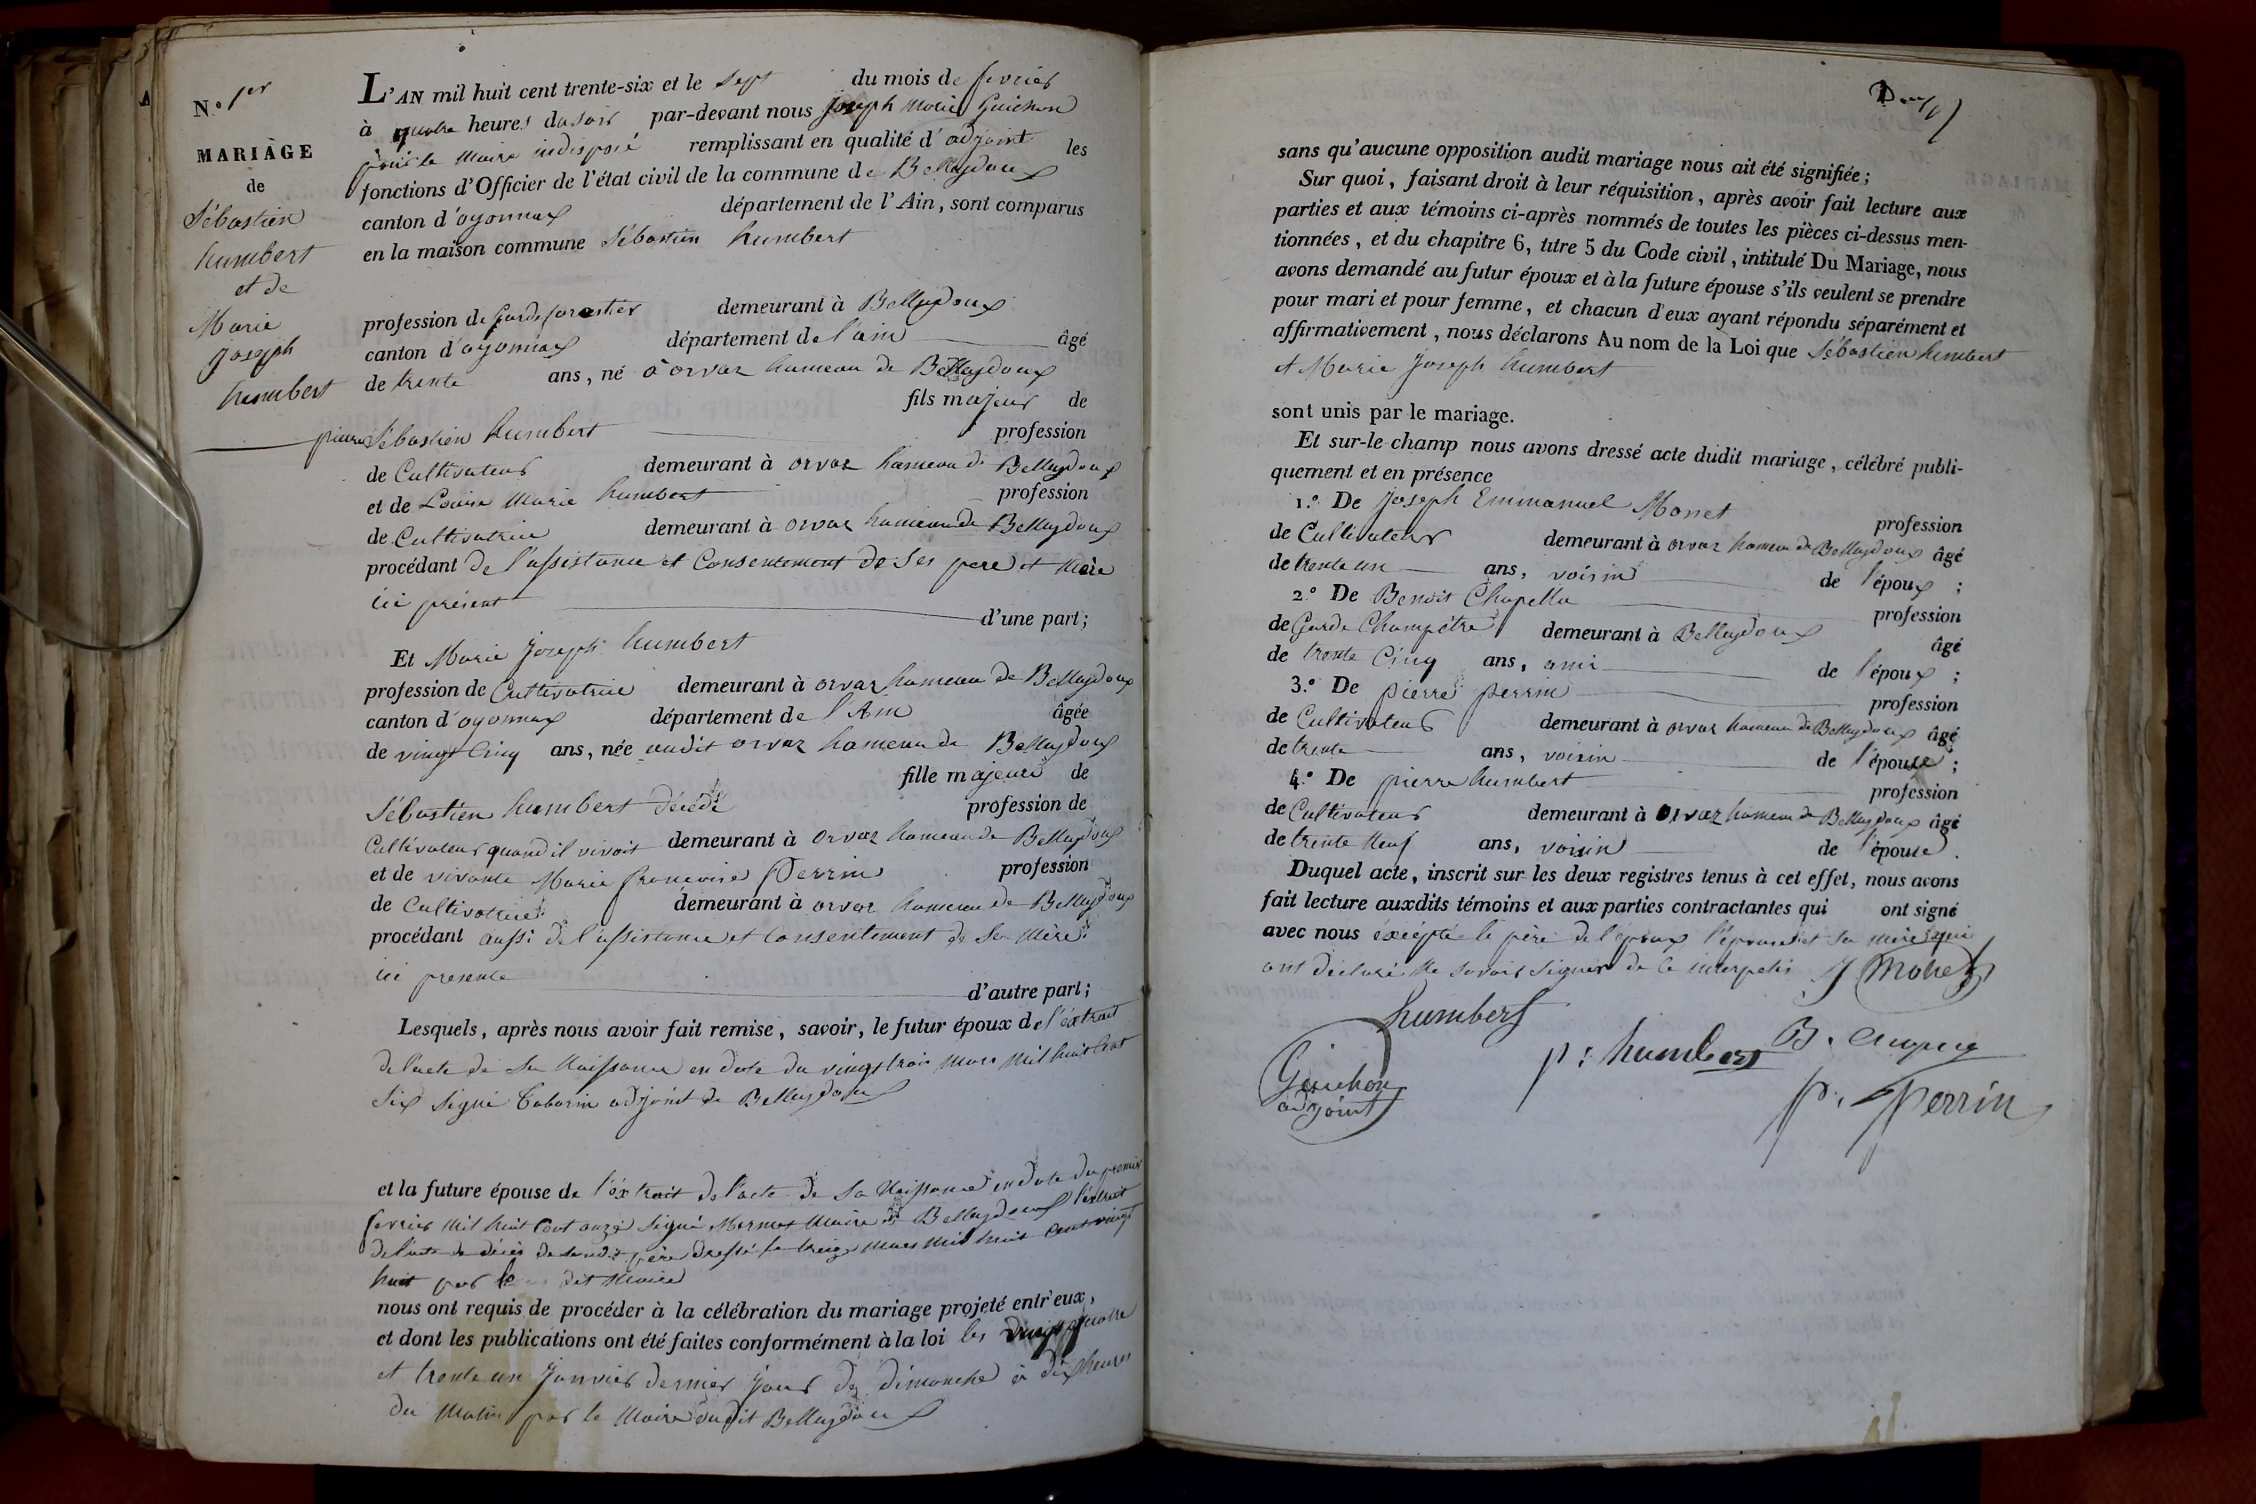 N.º 1er
MARIAGE
de
Sébastien
humbert
et de
Marie
joseph
humbert
L'AN mil huit cent trente-six et le sept du mois de fevrier
à quatre heures du soir par-devant nous joseph marie Guichon
pour le maire indisposé remplissant en qualité d'adjoint les
fonctions d'Officier de l'état civil de la commune de Belleydoux
canton d'oyonnax département de l'Ain, sont comparus
en la maison commune Sébastien humbert
profession de Garde forestier demeurant à Belleydoux
canton d'oyonnax département de l'ain âgé
de trente ans, né à orvaz hameau de Belleydoux
fils majeur de
pierre Sébastien humbert profession
de Cultivateur demeurant à orvaz hameau de Belleydoux
et de Louise Marie humbert profession
de Cultivatrice demeurant à orvaz hameau de Belleydoux
procédant de l'assistance et Consentement de ses pere et mère
ici présent d'une part;
Et Marie joseph humbert
profession de Cultivatrice demeurant à orvaz hameau de Belleydoux
canton d'oyonnax département de l'Ain âgée
de vingt cinq ans, née audit orvaz hameau de Belleydoux
fille majeure de
Sébastien humbert décédé profession de
Cultivateur quand il vivoit demeurant à orvaz hameau de Belleydoux
et de vivante Marie françoise Perrin profession
de Cultivatrice demeurant à orvaz hameau de Belleydoux
procédant aussi de l'assistance et consentement de sa mère
ici presente d'autre part;
Lesquels, après nous avoir fait remise, savoir, le futur époux de l'extrait
de l'acte de sa naissance en date du vingt trois mars mil huit cent
six signé Tabarin adjoint de Belleydoux
et la future épouse de l'extrait de l'acte de sa naissance en date du premier
fevrier mil huit cent onze signé Mermet maire de Belleydoux l'extrait
de l'acte de décès de sondit père dressé le treize mars mil huit cent vingt
huit par le dit maire
nous ont requis de procéder à la célébration du mariage projeté entr'eux,
et dont les publications ont été faites conformément à la loi les vingt quatre
et trente un janvier dernier jour de dimanche à dix heures
du matin par le maire dudit Belleydoux
Deux
sans qu'aucune opposition audit mariage nous ait été signifiée;
Sur quoi, faisant droit à leur réquisition, après avoir fait lecture aux
parties et aux témoins ci-après nommés de toutes les pièces ci-dessus men-
tionnées, et du chapitre 6, titre 5 du Code civil, intitulé Du Mariage, nous
avons demandé au futur époux et à la future épouse s'ils veulent se prendre
pour mari et pour femme, et chacun d'eux ayant répondu séparément et
affirmativement, nous déclarons Au nom de la Loi que Sébastien humbert
et Marie Joseph humbert
sont unis par le mariage.
Et sur-le-champ nous avons dressé acte dudit mariage, célébré publi-
quement et en présence
1.º De Joseph Emmanuel Monet profession
de Cultivateur demeurant à orvaz hameau de Belleydoux âgé
de trente un ans, voisin de l'époux;
2.º De Benoit Chapelle profession
de Garde Champêtre demeurant à Belleydoux âgé
de trente Cinq ans, ami de l'époux;
3.º De pierre perrin profession
de Cultivateur demeurant à orvaz hameau de Belleydoux âgé
de trente ans, voisin de l'épouse;
4.º De pierre humbert profession
de Cultivateur demeurant à orvaz hameau de Belleydoux âgé
de trente neuf ans, voisin de l'épouse.
Duquel acte, inscrit sur les deux registres tenus à cet effet, nous avons
fait lecture auxdits témoins et aux parties contractantes qui ont signé
avec nous excepté le père de l'époux l'épouse et sa mère qui
ont déclaré ne savoir signer de ce interpelés J Monet
humbert
Guichon
adjoint
p: humbert
B.
p. Perrin